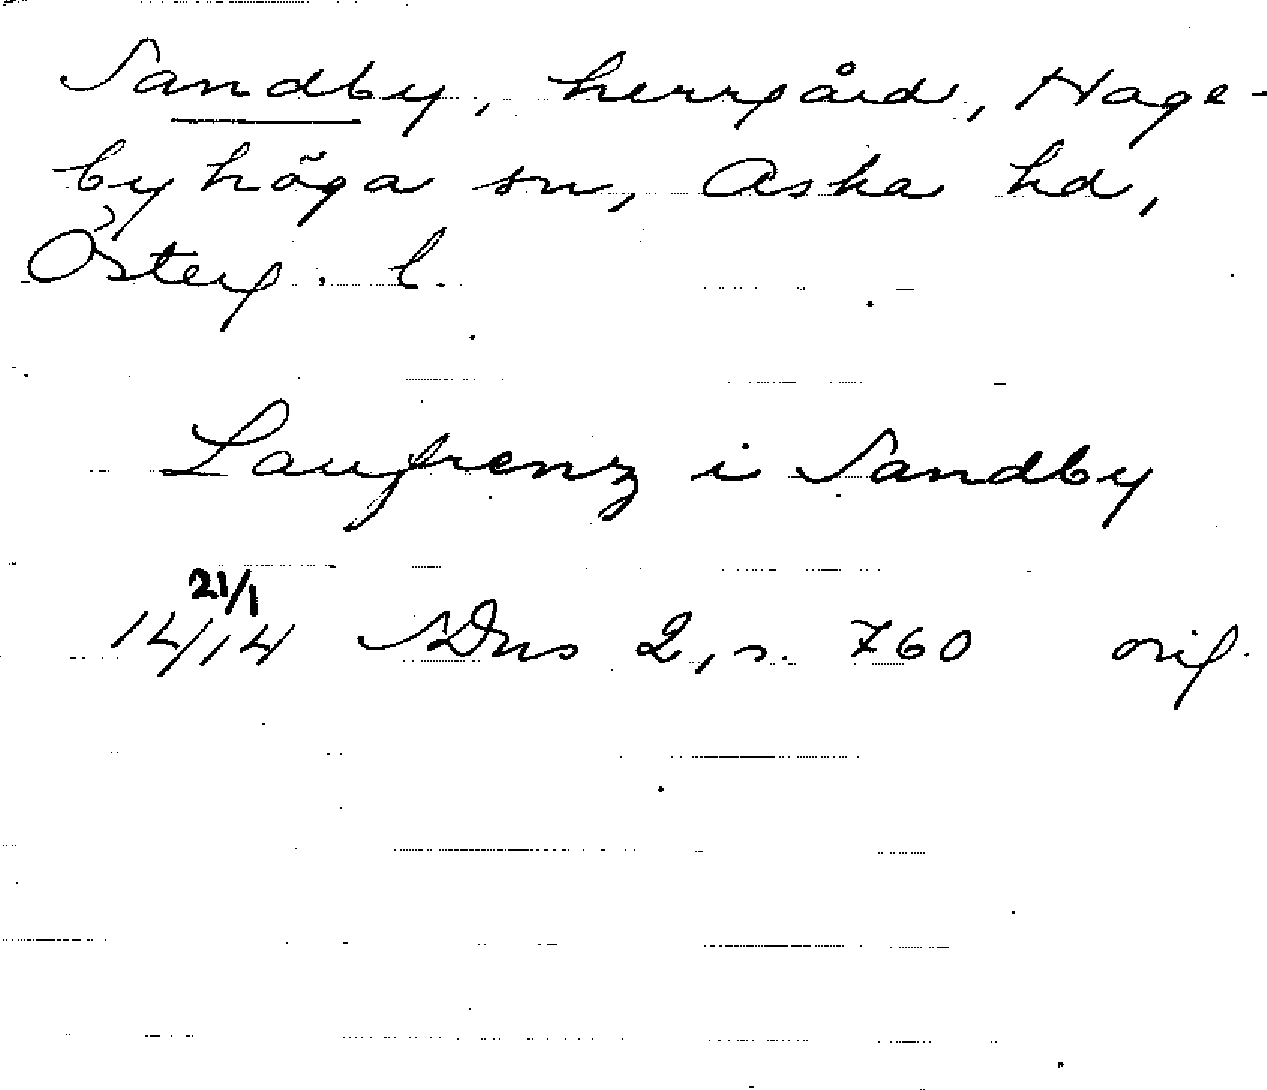 Sandby, herrgård, Hage-
byhöga sn, Aska hd,
Österg. l.
Laufrenz i Sandby
21/1
14/14 SDns 2, s. 760 orig.